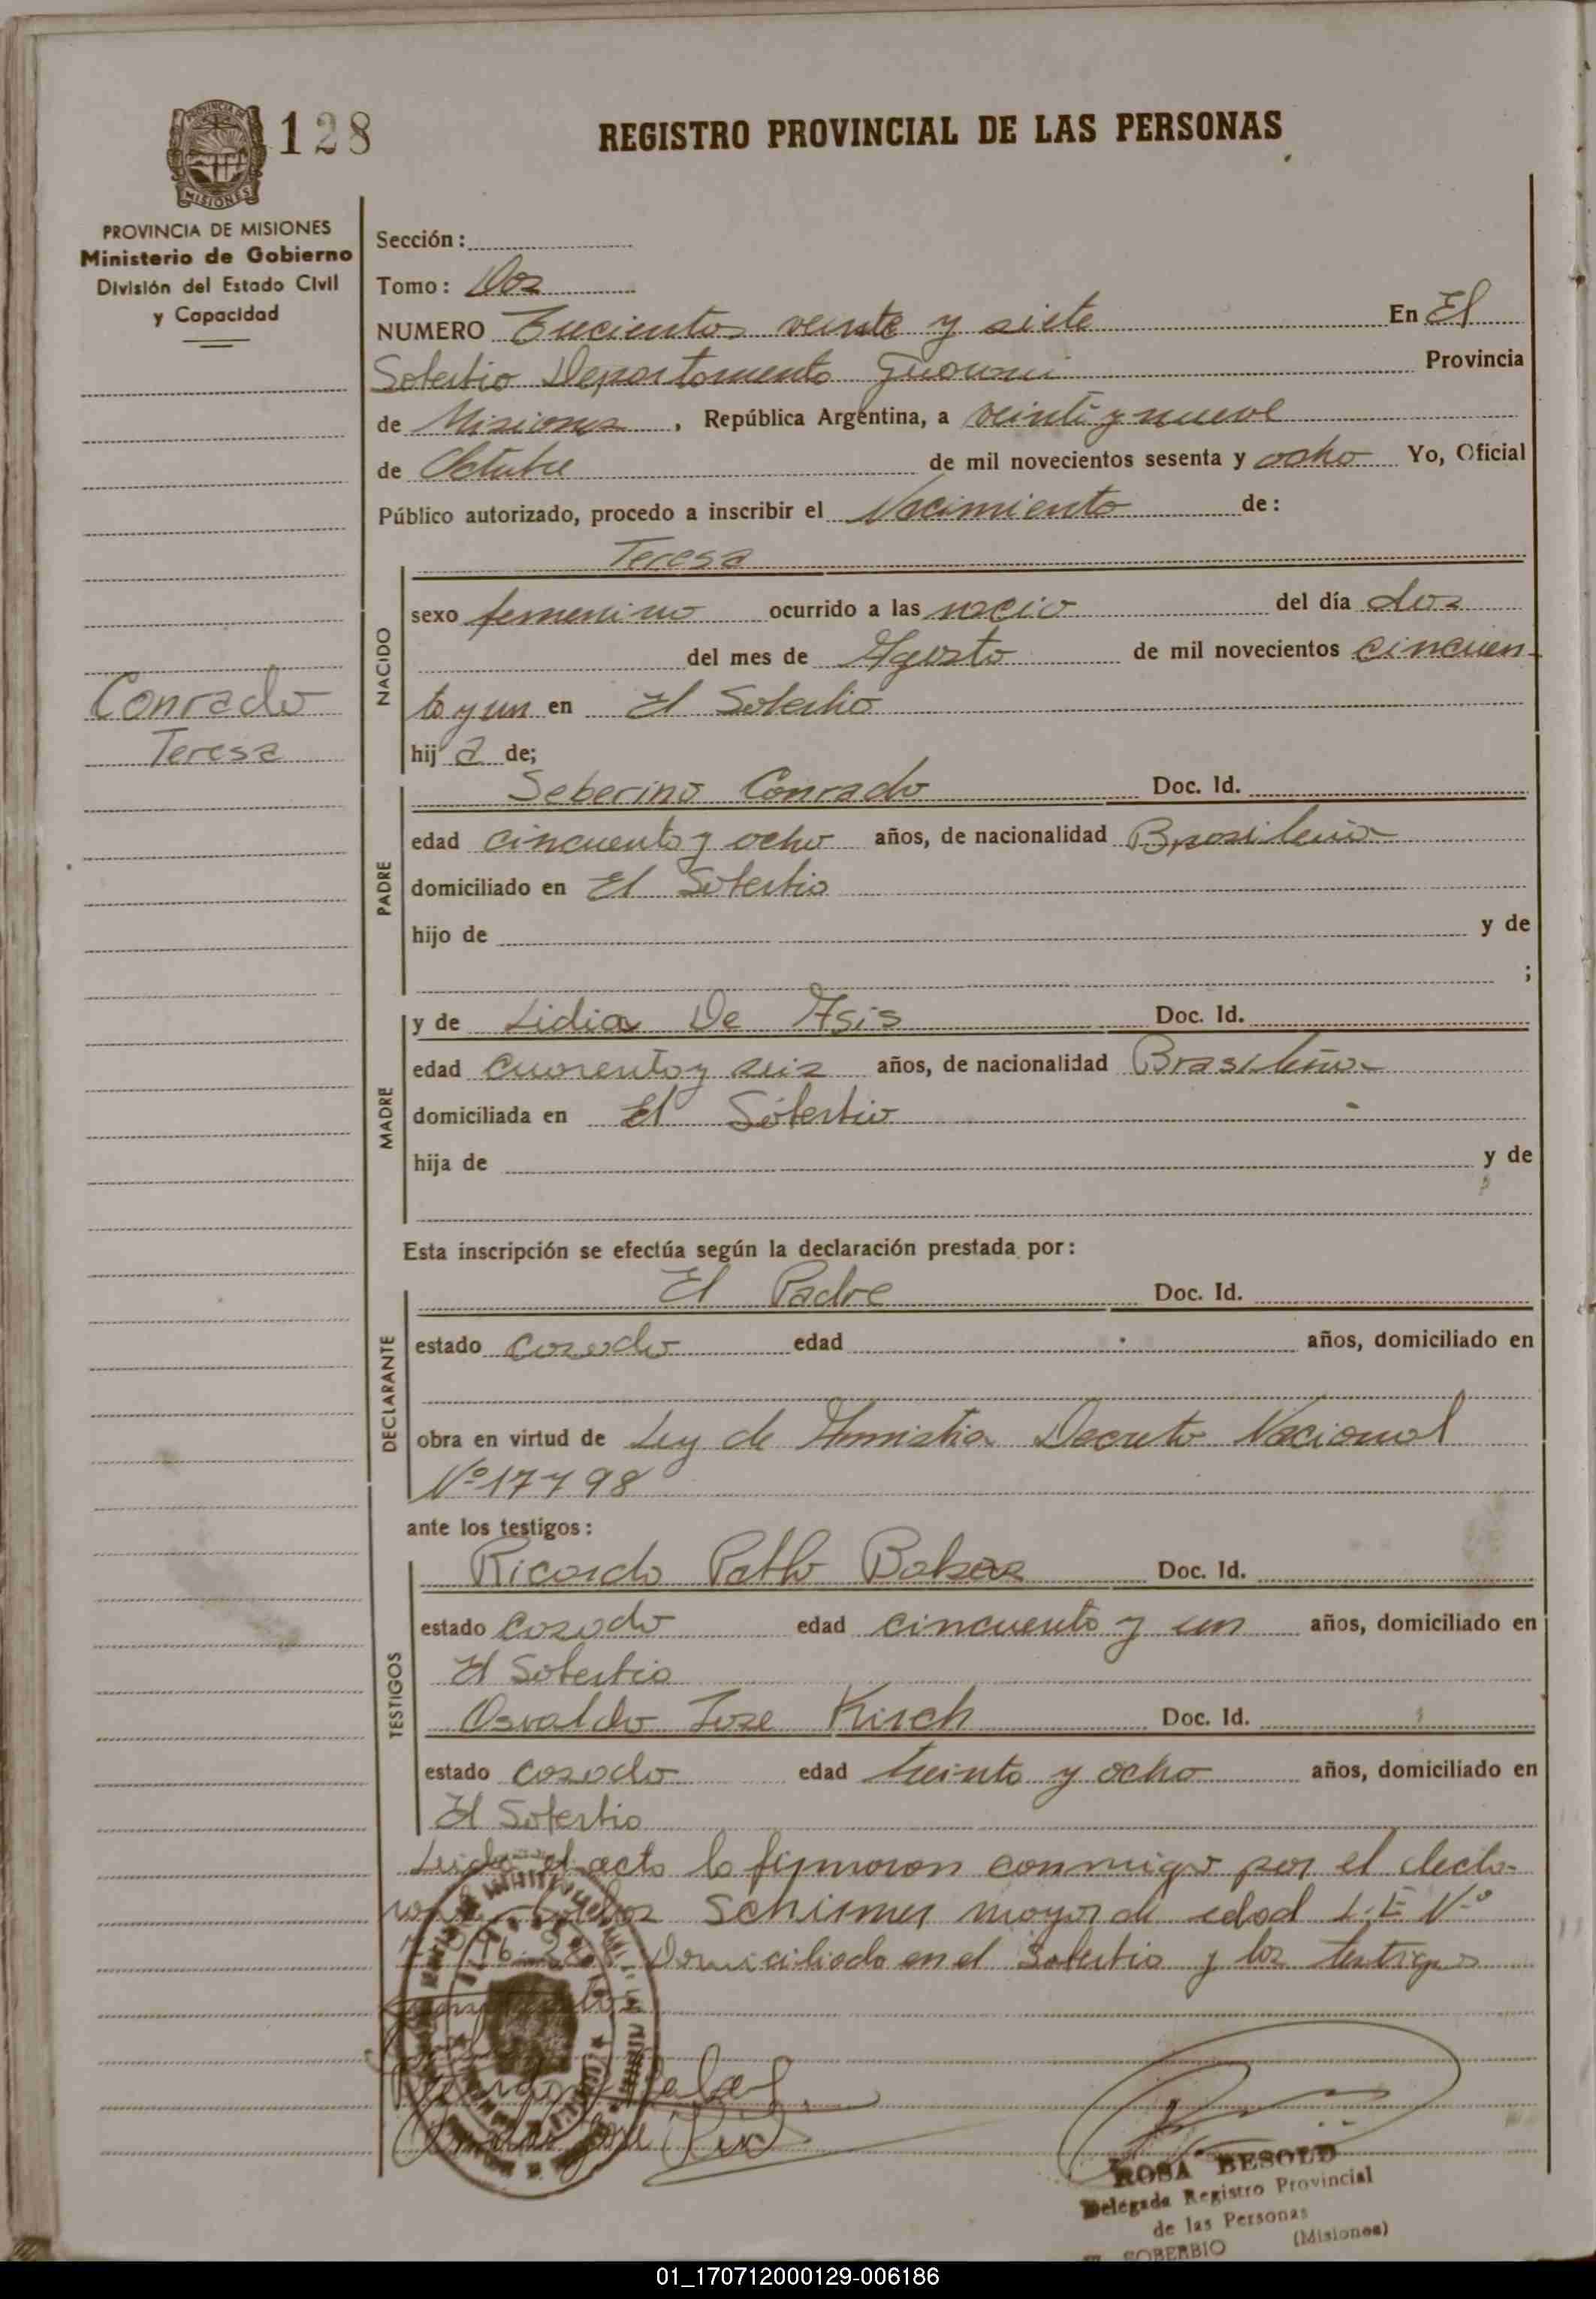 128
REGISTRO PROVINCIAL DE LAS PERSONAS
PROVINCIA DE MISIONES
Ministerio de Gobierno
División del Estado Civil
y Capacidad
Sección:
Tomo: Dos
NUMERO Trecientos veinte y siete En El
Soberbio Departamento Guarani Provincia
de Misiones, República Argentina, a veinti y nueve
de Octubre de mil novecientos sesenta y ocho Yo, Oficial
Público autorizado, procedo a inscribir el Nacimiento de:
Teresa
NACIDO
sexo femenino ocurrido a las nacio del día dos
del mes de Agosto de mil novecientos cincuen-
ta y un en El Soberbio
hija de;
Conrado
Teresa
PADRE
Seberino Conrado Doc. Id.
edad cincuenta y ocho años, de nacionalidad Brasileña
domiciliado en El Soberbio
hijo de y de
;
MADRE
y de Lidia De Asis Doc. Id.
edad cuarenta y seis años, de nacionalidad Brasileña
domiciliada en El Soberbio
hija de y de
Esta inscripción se efectúa según la declaración prestada por:
DECLARANTE
El Padre Doc. Id.
estado casado edad años, domiciliado en
obra en virtud de Ley de Amnistia Decreto Nacional
Nº 17798
ante los testigos:
TESTIGOS
Ricardo Pablo Doc. Id.
estado casado edad cincuenta y un años, domiciliado en
El Soberbio
Osvaldo Jose Kirch Doc. Id.
estado casado edad treinta y ocho años, domiciliado en
El Soberbio
Leida el acta la firmaron conmigo por el decla-
mayor de edad L.E Nº
Domiciliado en el Soberbio y los testigos
Jose
ROSA BESOLD
Delegada Registro Provincial
de las Personas
SOBERBIO (Misiones)
01_170712000129-006186